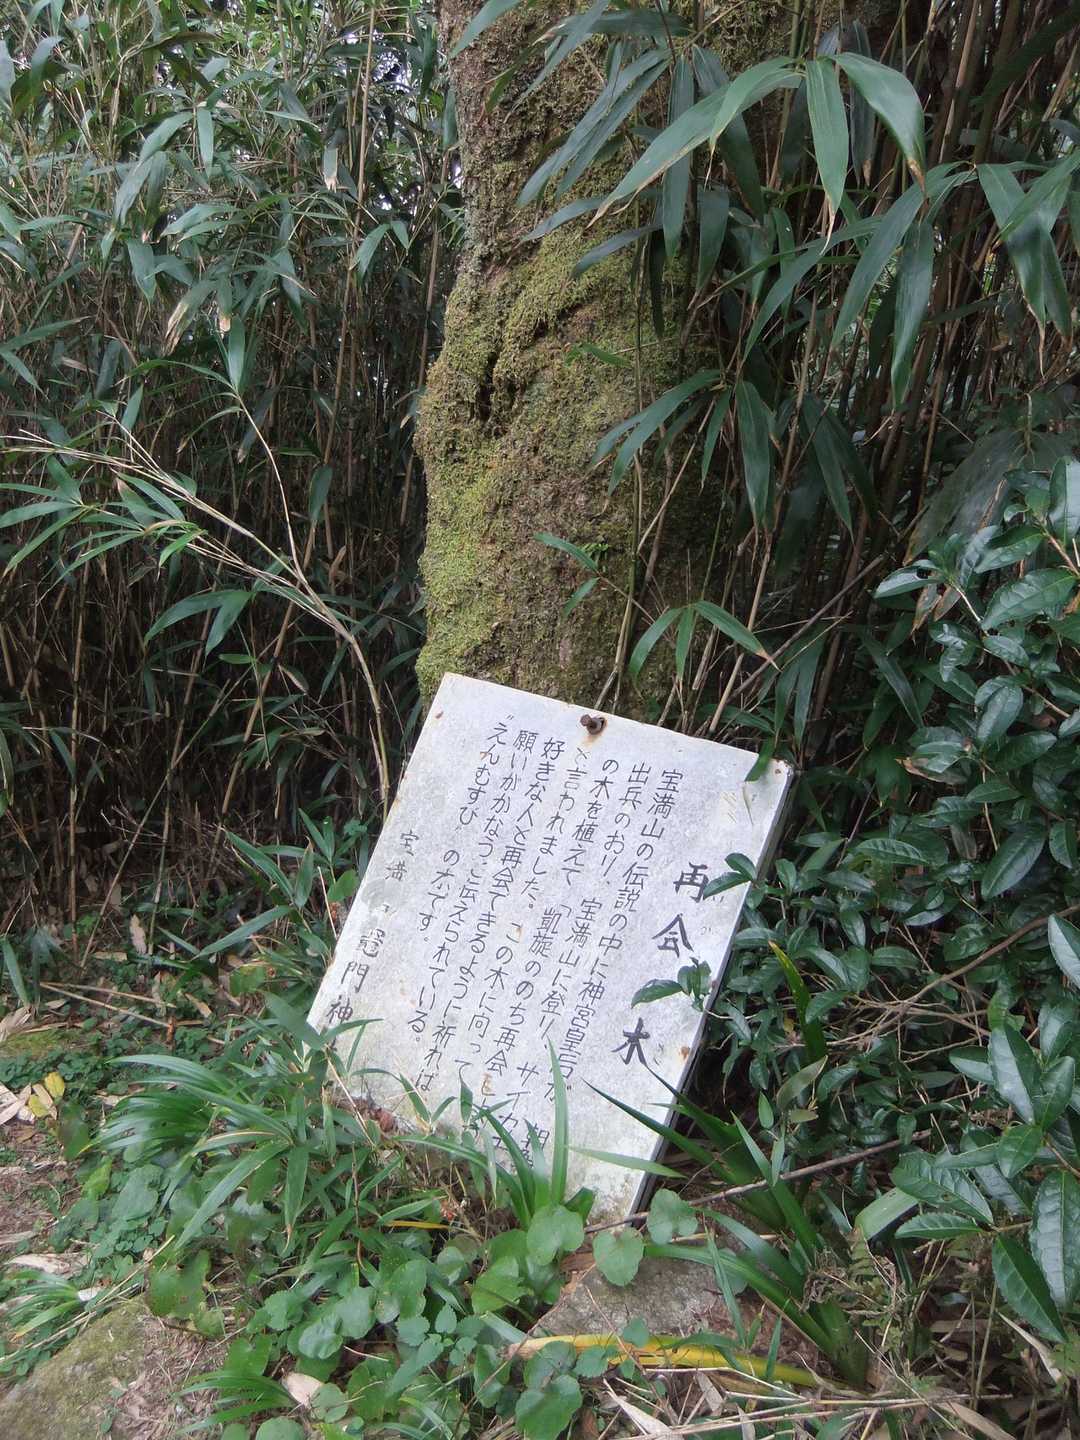 再会 木
宝満山の伝説の中に神宮皇后が
出兵のおり、宝満山に登り、
の木を植えて「凱旋ののち再会
と言われました。このち再会
好きな人と再会できるように祈れば
願いがかなうと伝えられている。
"えんむすび"の木です。
宝満 竈門神